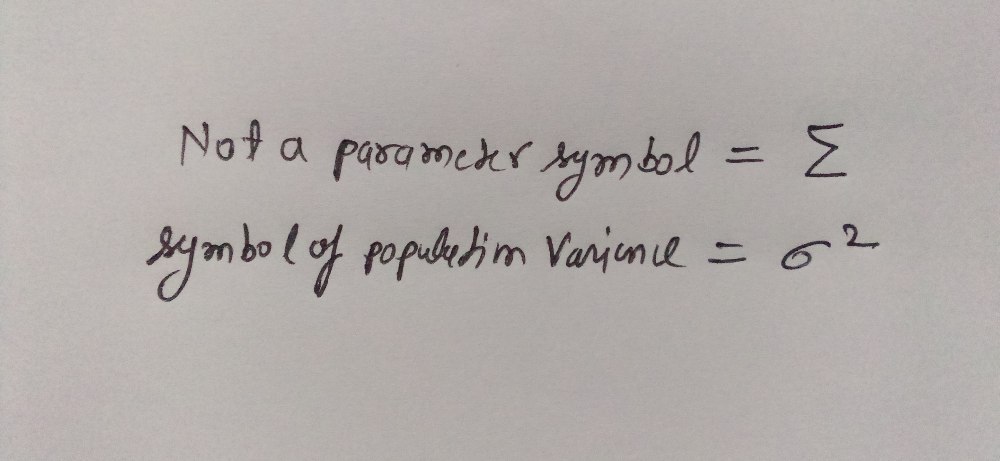 Not a parameter symbol = Σ
symbol of population Variance = σ²